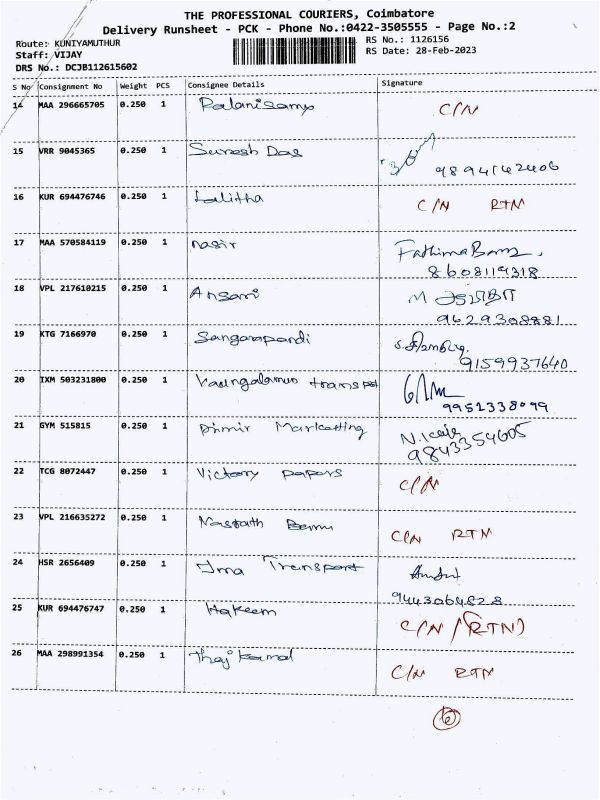 THE PROFESSIONAL COURIERS, Coimbatore
Delivery Runsheet - PCK - Phone No.:0422-3505555 - Page No.:2
Route: KUNIYAMUTHUR RS No.: 1126156
Staff: VIJAY RS Date: 28-Feb-2023
DRS No.: DCJB112615602
S No Consignment No Weight PCS Consignee Details Signature
14 MAA 296665705 0.250 1 Palanisamy C/N
15 VRR 9045365 0.250 1 Suresh Das 9894142406
16 KUR 694476746 0.250 1 Lalitha C/N RTN
17 MAA 570584119 0.250 1 nasir Fathima
8608119318
18 VPL 217610215 0.250 1 Ansari M
9629308881
19 KTG 7166970 0.250 1 Sangarapandi
9159937640
20 IXM 503231800 0.250 1 transpot
9952338099
21 GYM 515815 0.250 1 Marketting
9843354605
22 TCG 8072447 0.250 1 Victory papers C/N
23 VPL 216635272 0.250 1 C/N RTN
24 HSR 2656409 0.250 1 Transport
9443064828
25 KUR 694476747 0.250 1 Hakeem C/N (RTN)
26 MAA 298991354 0.250 1 Thaj kamal C/N RTN
6